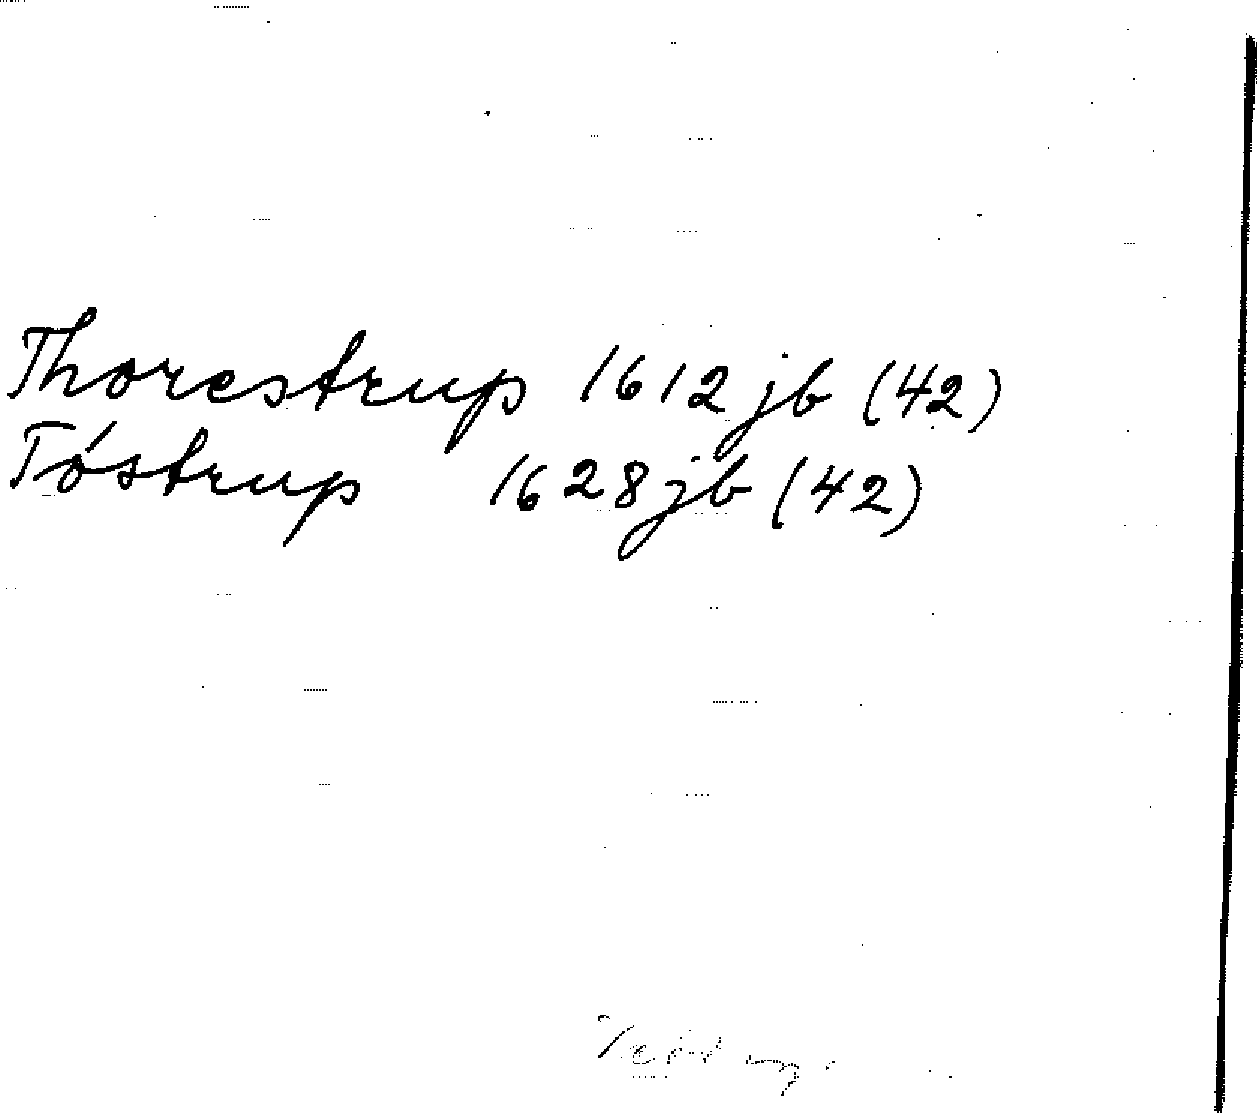 Thorestrup 1612 jb (42)
Tóstrup 1628 jb (42)